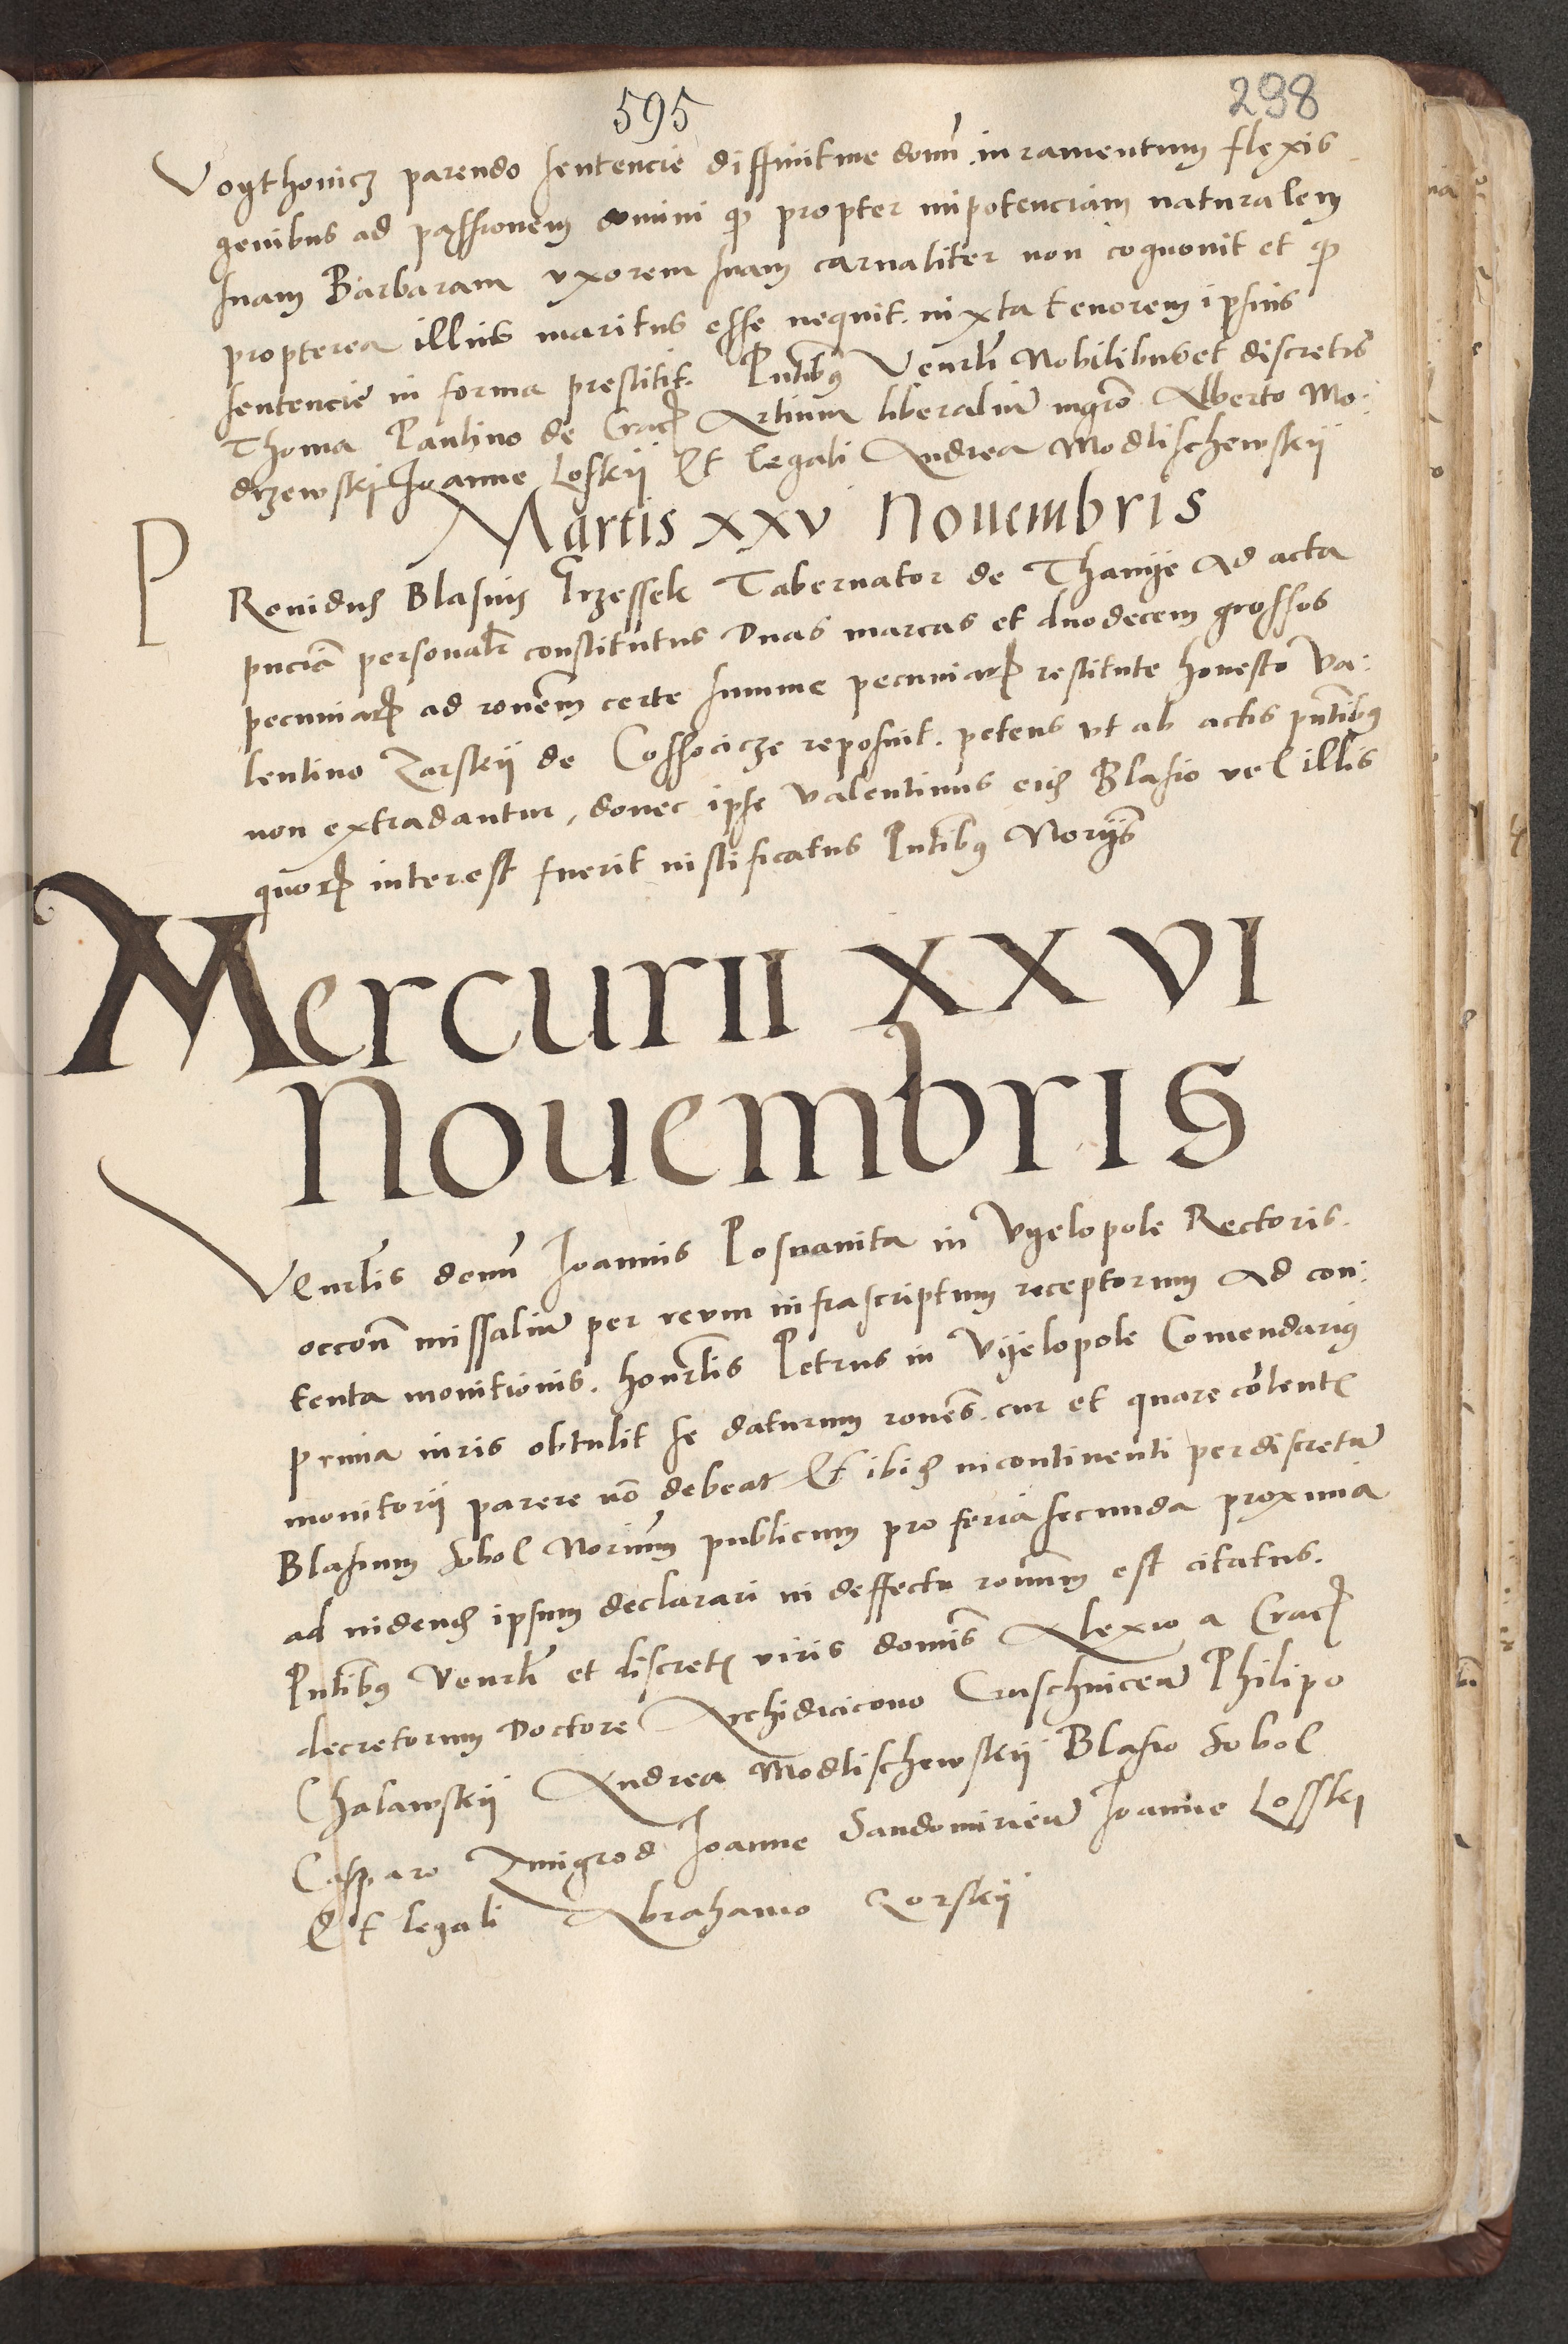 595
298
Vogthonicz parendo sentencie diffinitiue domi iuramentum flexis
genibus ad passionem domini quod propter inpotenciam naturalem
suam Barbaram vxorem suam carnaliter non cognouit et quod
propterea illius maritus esse nequit. iuxta tenorem ipsius
sentencie in forma prestitit. Pntibus Venrli Nobilibus et discretis
Thoma Paulino de Crac Artium liberaliu mgro Alberto Mo:
drzewskj Joanne Loskij Et legali Andrea Modlischewskij
Martis XXV Nouembris
PRouidus Blasius Grzessek Tabernator de Thanije Ad acta
pncia personalr constitutus Duas marcas et duodecem grossos
pecuniar ad ronem certe summe pecuniar restitute honesto Va:
lentino Zarskij de Cossocicze reposuit. petens vt ab actis pntibus
non extradantur, donec ipse Valentinus eid Blasio vel illis
quor interest fuerit iustificatus Pntibus Norijs
Mercurii XXVI
Nouembris
VEnrlis domi Joannis Posnanita in Vyelopole Rectoris.
occon missaliu per reum infrascriptum receptorum Ad con:
tenta monitionis. honrlis Petrus in Vijelopole Comendarius
prima iuris obtulit se daturum rones. cur et quare colent
monitorij parere no debeat Et ibid incontinenti per discretu
Blasium Sobol Norium publicum pro feria secunda proxima
ad uidend ipsum declarari in deffectu ronum est citatus.
Pntibus Venrli et discret viris domis Alexio a Crac
decretorum Doctore Archidiacono Cruschuicen Philipo
Chalawskij Andrea Modlischewskij Blasio Sobol
Casparo Zmigrod Joanne Sandomirien Joanne Losskj
Et legali Abrahamo Zorskij